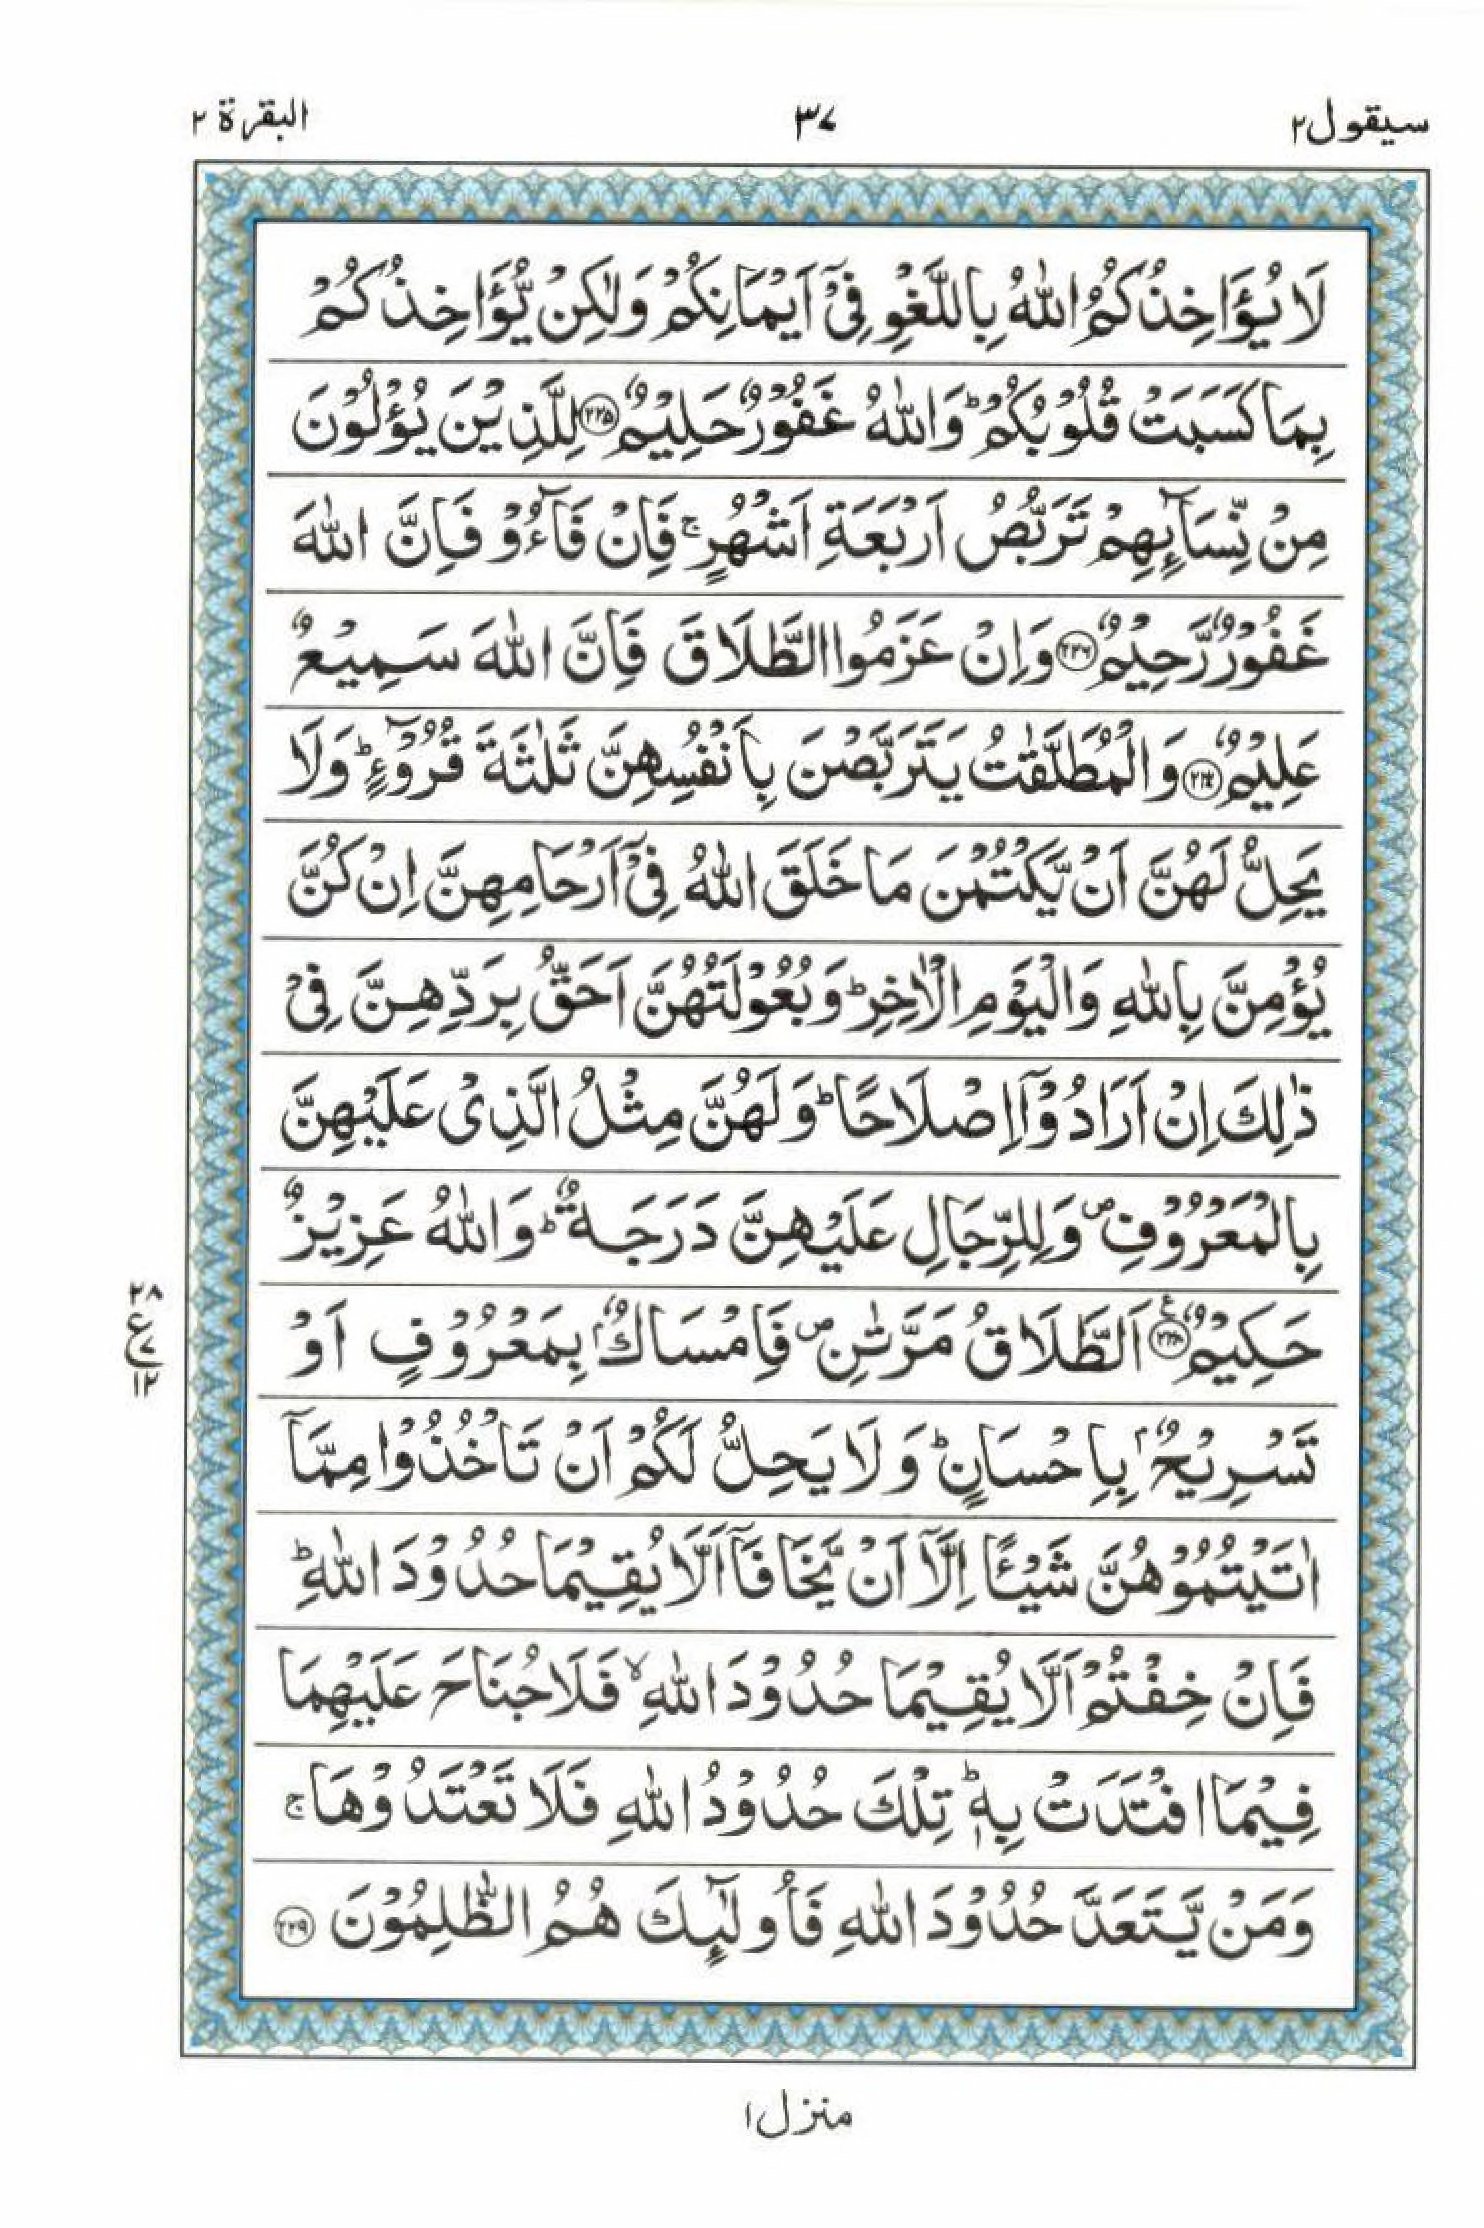 سيقول ٢
٣٧
البقرة ٢
لَا يُؤَاخِذُكُمُ اللّٰهُ بِاللَّغْوِ فِىْٓ اَيْمَانِكُمْ وَلٰكِنْ يُّؤَاخِذُكُمْ
بِمَا كَسَبَتْ قُلُوْبُكُمْ ؕ وَاللّٰهُ غَفُوْرٌ حَلِيْمٌ ﴿٢٢٥﴾ لِلَّذِيْنَ يُؤْلُوْنَ
مِنْ نِّسَآئِهِمْ تَرَبُّصُ اَرْبَعَةِ اَشْهُرٍ ۚ فَاِنْ فَآءُوْ فَاِنَّ اللّٰهَ
غَفُوْرٌ رَّحِيْمٌ ﴿٢٢٦﴾ وَاِنْ عَزَمُوا الطَّلَاقَ فَاِنَّ اللّٰهَ سَمِيْعٌ
عَلِيْمٌ ﴿٢٢٧﴾ وَالْمُطَلَّقٰتُ يَتَرَبَّصْنَ بِاَنْفُسِهِنَّ ثَلٰثَةَ قُرُوْٓءٍ ؕ وَلَا
يَحِلُّ لَهُنَّ اَنْ يَّكْتُمْنَ مَا خَلَقَ اللّٰهُ فِىْٓ اَرْحَامِهِنَّ اِنْ كُنَّ
يُؤْمِنَّ بِاللّٰهِ وَالْيَوْمِ الْاٰخِرِ ؕ وَبُعُوْلَتُهُنَّ اَحَقُّ بِرَدِّهِنَّ فِىْ
ذٰلِكَ اِنْ اَرَادُوْٓا اِصْلَاحًا ؕ وَلَهُنَّ مِثْلُ الَّذِىْ عَلَيْهِنَّ
بِالْمَعْرُوْفِ ۪ وَلِلرِّجَالِ عَلَيْهِنَّ دَرَجَةٌ ؕ وَاللّٰهُ عَزِيْزٌ
حَكِيْمٌ ﴿٢٢٨﴾ اَلطَّلَاقُ مَرَّتٰنِ ۪ فَاِمْسَاكٌۢ بِمَعْرُوْفٍ اَوْ
تَسْرِيْحٌۢ بِاِحْسَانٍ ؕ وَلَا يَحِلُّ لَكُمْ اَنْ تَاْخُذُوْا مِمَّآ
اٰتَيْتُمُوْهُنَّ شَيْـًٔا اِلَّآ اَنْ يَّخَافَآ اَلَّا يُقِيْمَا حُدُوْدَ اللّٰهِ ؕ
فَاِنْ خِفْتُمْ اَلَّا يُقِيْمَا حُدُوْدَ اللّٰهِ ۙ فَلَا جُنَاحَ عَلَيْهِمَا
فِيْمَا افْتَدَتْ بِهٖ ؕ تِلْكَ حُدُوْدُ اللّٰهِ فَلَا تَعْتَدُوْهَا ۚ
وَمَنْ يَّتَعَدَّ حُدُوْدَ اللّٰهِ فَاُولٰٓئِكَ هُمُ الظّٰلِمُوْنَ ﴿٢٢٩﴾
٢٨
ع
٧
١٢
منزل ١